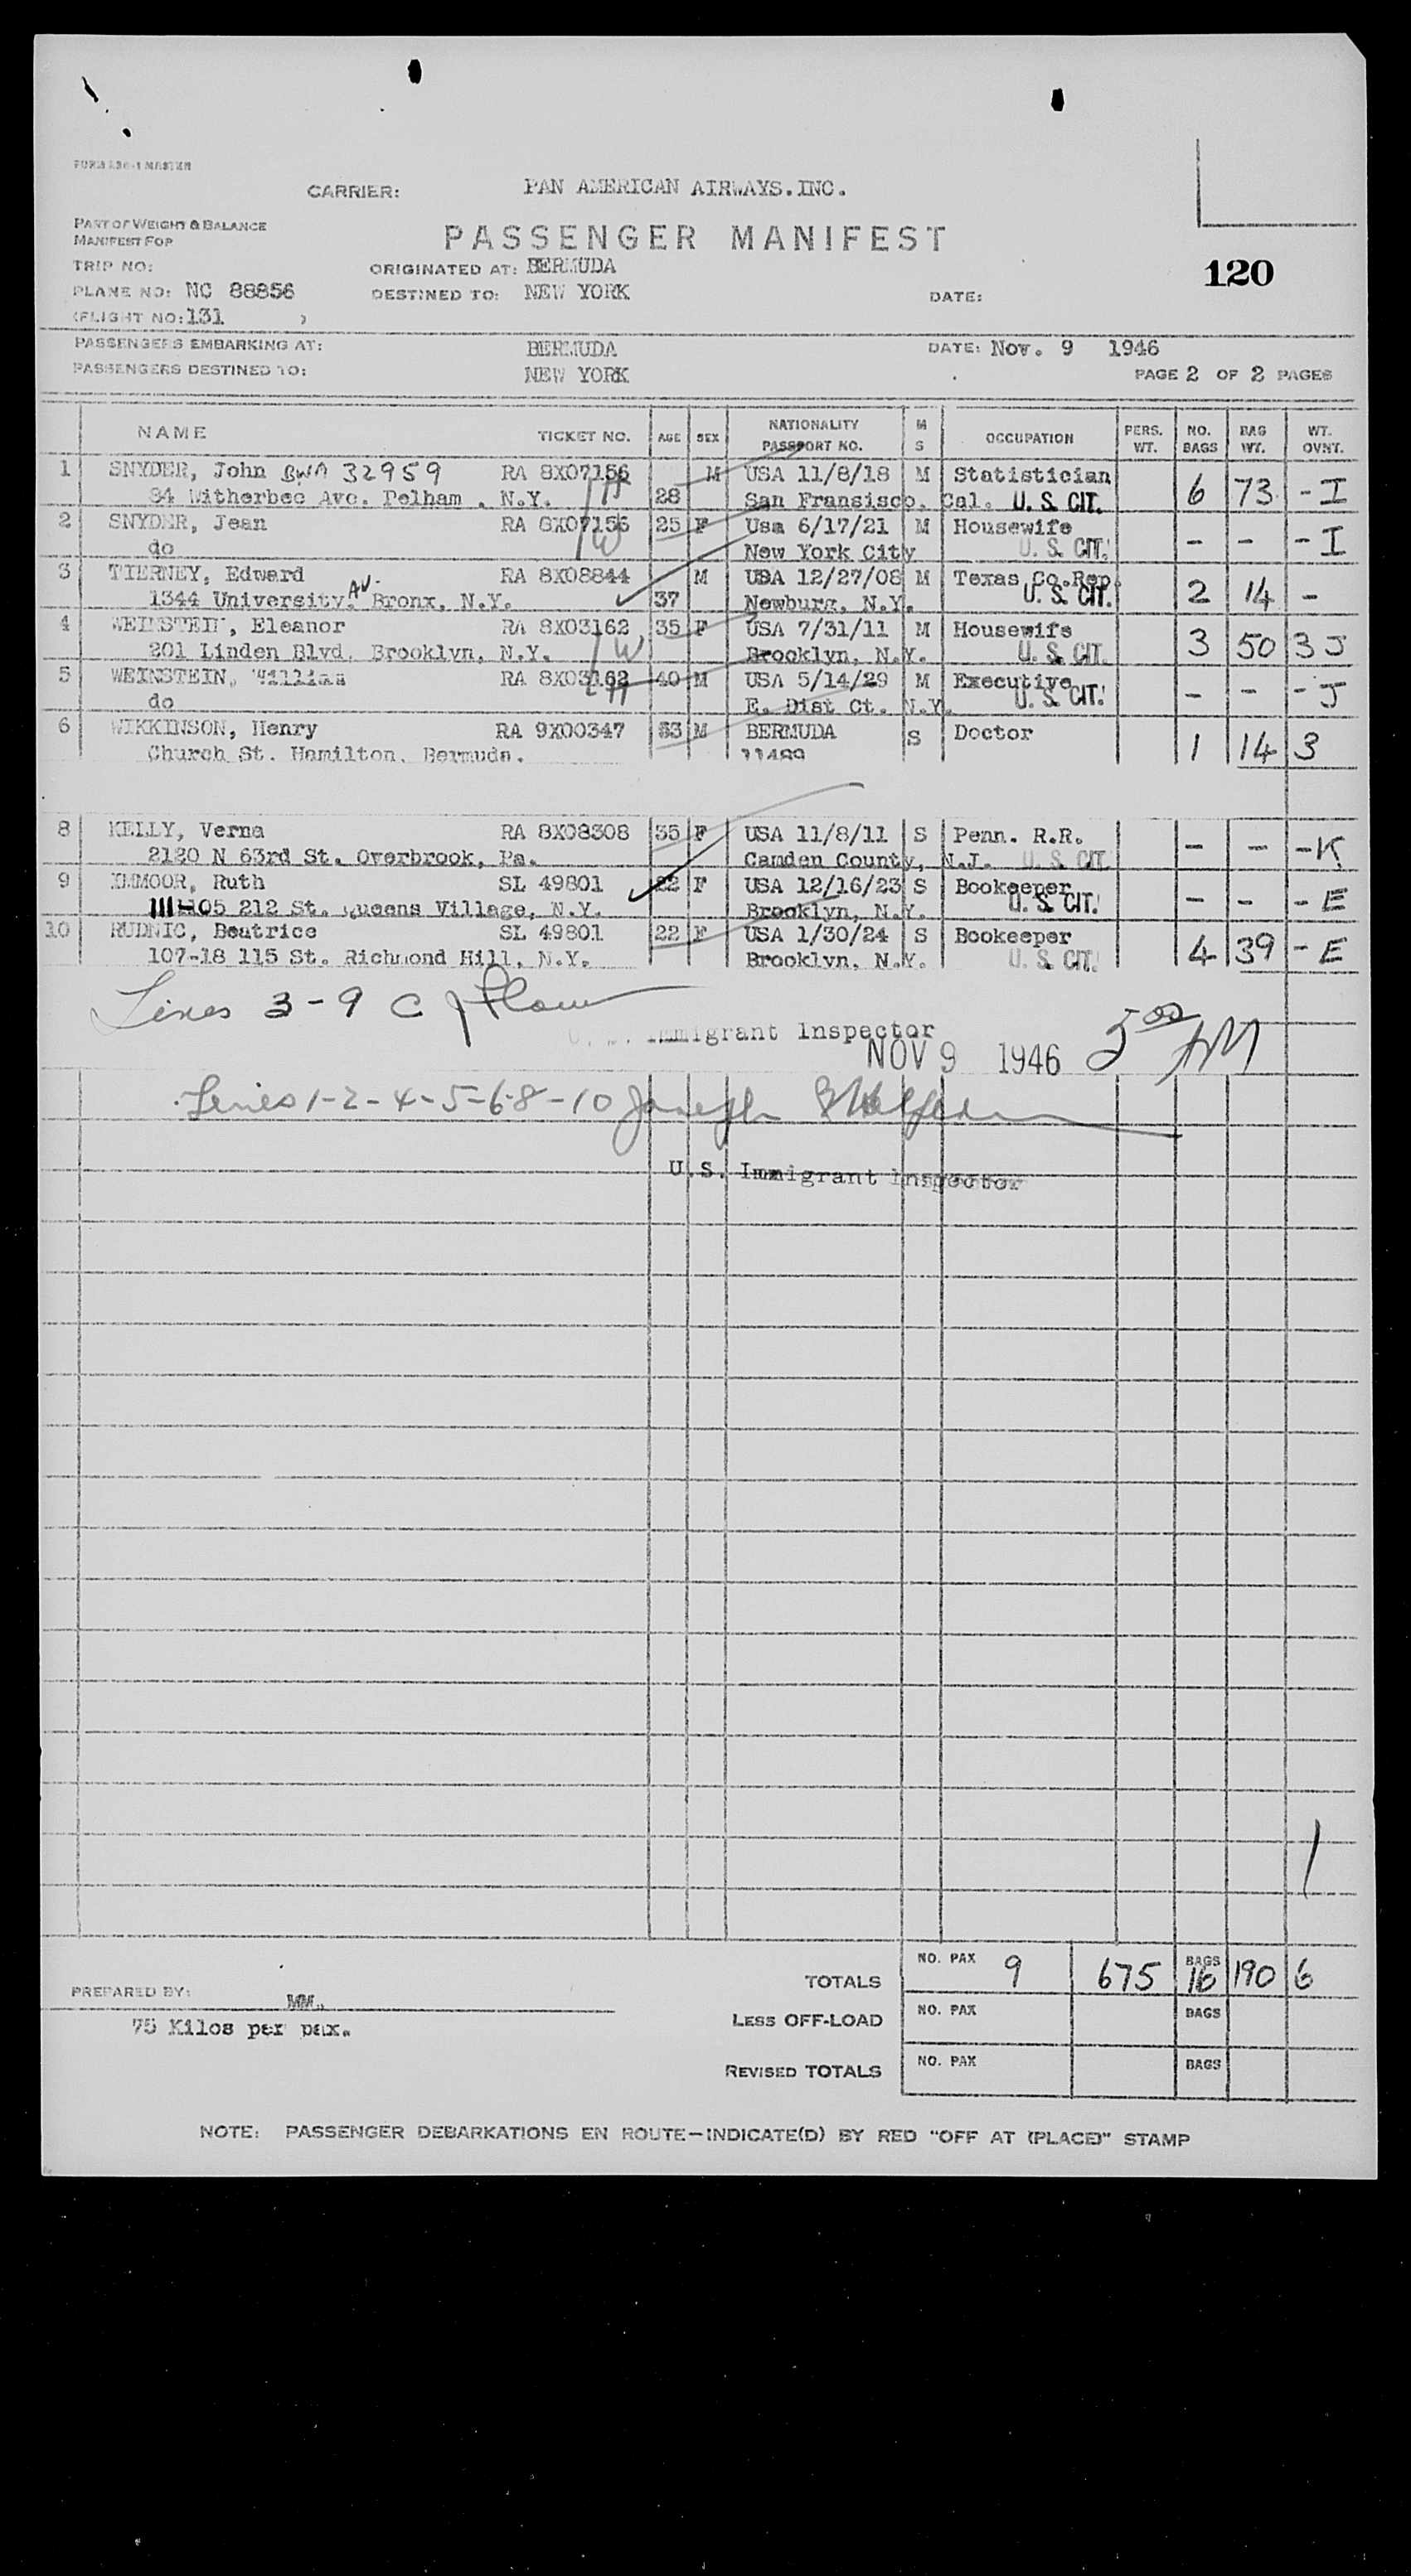 FORM 136-1 MASTER
CARRIER: PAN AMERICAN AIRWAYS.INC.
PART OF WEIGHT & BALANCE
MANIFEST FOR
PASSENGER MANIFEST
TRIP NO: ORIGINATED AT: BERMUDA
120
PLANE NO: NC 88856 DESTINED TO: NEW YORK DATE:
(FLIGHT NO:131 )
PASSENGERS EMBARKING AT: BERMUDA DATE: Nov. 9 1946
PASSENGERS DESTINED TO: NEW YORK PAGE 2 OF 2 PAGES
NAME TICKET NO. AGE SEX NATIONALITY PASSPORT NO. M S OCCUPATION PERS. WT. NO. BAGS BAG WT. WT. OVNT.
1 SNYDER, John BWA 32959 RA 8X07156 M USA 11/8/18 M Statistician 6 73 - I
84 Witherbee Ave. Pelham , N.Y. 28 San Fransisco, Cal. U. S. CIT.
2 SNYDER, Jean RA 8X07156 25 F Usa 6/17/21 M Housewife - - - I
do W New York City U. S. CIT.
3 TIERNEY, Edward RA 8X08844 M USA 12/27/08 M Texas Co.Rep. 2 14 -
1344 University, Av. Bronx, N.Y. 37 Newburg, N.Y. U. S. CIT.
4 WEINSTEIN, Eleanor RA 8X03162 35 F USA 7/31/11 M Housewife 3 50 3 J
201 Linden Blvd. Brooklyn, N.Y. W Brooklyn, N.Y. U. S. CIT.
5 WEINSTEIN, William RA 8X03162 40 M USA 5/14/29 M Executive - - - J
do E. Dist Ct. N.Y. U. S. CIT.
6 WIKKINSON, Henry RA 9X00347 53 M BERMUDA S Doctor 1 14 3
Church St. Hamilton, Bermuda. 11489
8 KELLY, Verna RA 8X08308 35 F USA 11/8/11 S Penn. R.R. - - - K
2120 N 63rd St. Overbrook, Pa. Camden County, N.J. U. S. CIT.
9 IMMOOR, Ruth SL 49801 22 F USA 12/16/23 S Bookeeper - - - E
105 212 St. Queens Village, N.Y. Brooklyn, N.Y. U. S. CIT.
10 RUDNIC, Beatrice SL 49801 22 F USA 1/30/24 S Bookeeper 4 39 - E
107-18 115 St. Richmond Hill, N.Y. Brooklyn, N.Y. U. S. CIT.
Lines 3-9 C J
Immigrant Inspector
NOV 9 1946 5 00 AM
Lines 1-2-4-5-6-8-10 Joseph
U.S. Immigrant Inspector
TOTALS NO. PAX 9 675 BAGS 16 190 6
PREPARED BY: MM.
75 Kilos per pax.
LESS OFF-LOAD NO. PAX BAGS
REVISED TOTALS NO. PAX BAGS
NOTE: PASSENGER DEBARKATIONS EN ROUTE—INDICATE(D) BY RED "OFF AT (PLACE)" STAMP